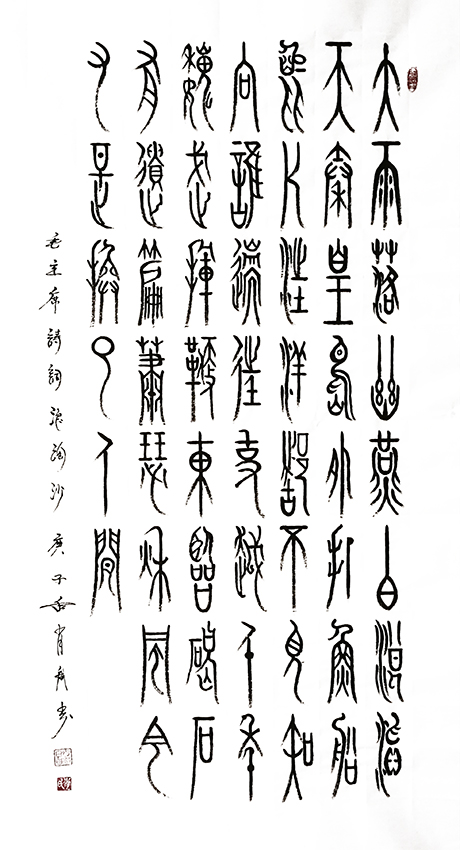 大雨落幽燕白浪滔
天秦皇島外打魚船
一片汪洋都不見知
向誰邊往事越千年
魏武揮鞭東臨碣石
有遺篇蕭瑟秋風今
又是換了人間
毛主席詩詞浪淘沙 庚子 肖 書